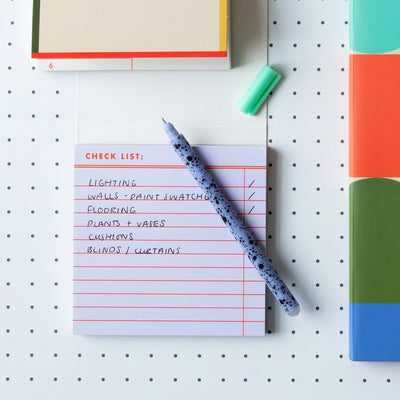 6
CHECK LIST:
LIGHTING /
WALLS - PAINT SWATCHES /
FLOORING /
PLANTS + VASES
CUSHIONS
BLINDS / CURTAINS